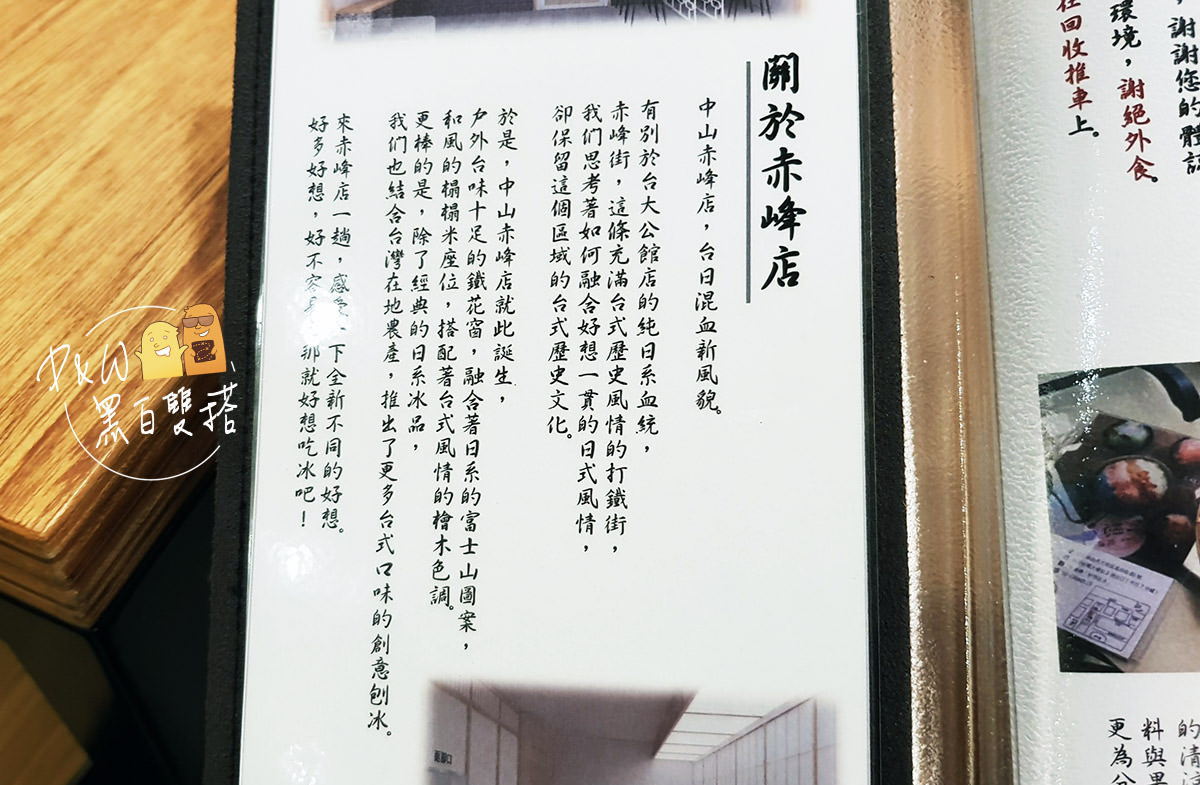 謝謝您的體諒
環境，謝絕外食。
在回收推車上。
關於赤峰店
中山赤峰店，台日混血新風貌。
有別於台大公館店的純日系血統，
赤峰街，這條充滿台式歷史風情的打鐵街，
我們思考著如何融合好想一貫的日式風情，
卻保留這個區域的台式歷史文化。
於是，中山赤峰店就此誕生，
戶外台味十足的鐵花窗，融合著日系的富士山圖案，
和風的榻榻米座位，搭配著台式風情的檜木色調。
更棒的是，除了經典的日系冰品，
我們也結合台灣在地農產，推出了更多台式口味的創意刨冰。
來赤峰店一趟，感受一下全新不同的好想。
好多好想，好不容易 那就好想吃冰吧！
P&W
黑白雙搭
的清
料與果
更為